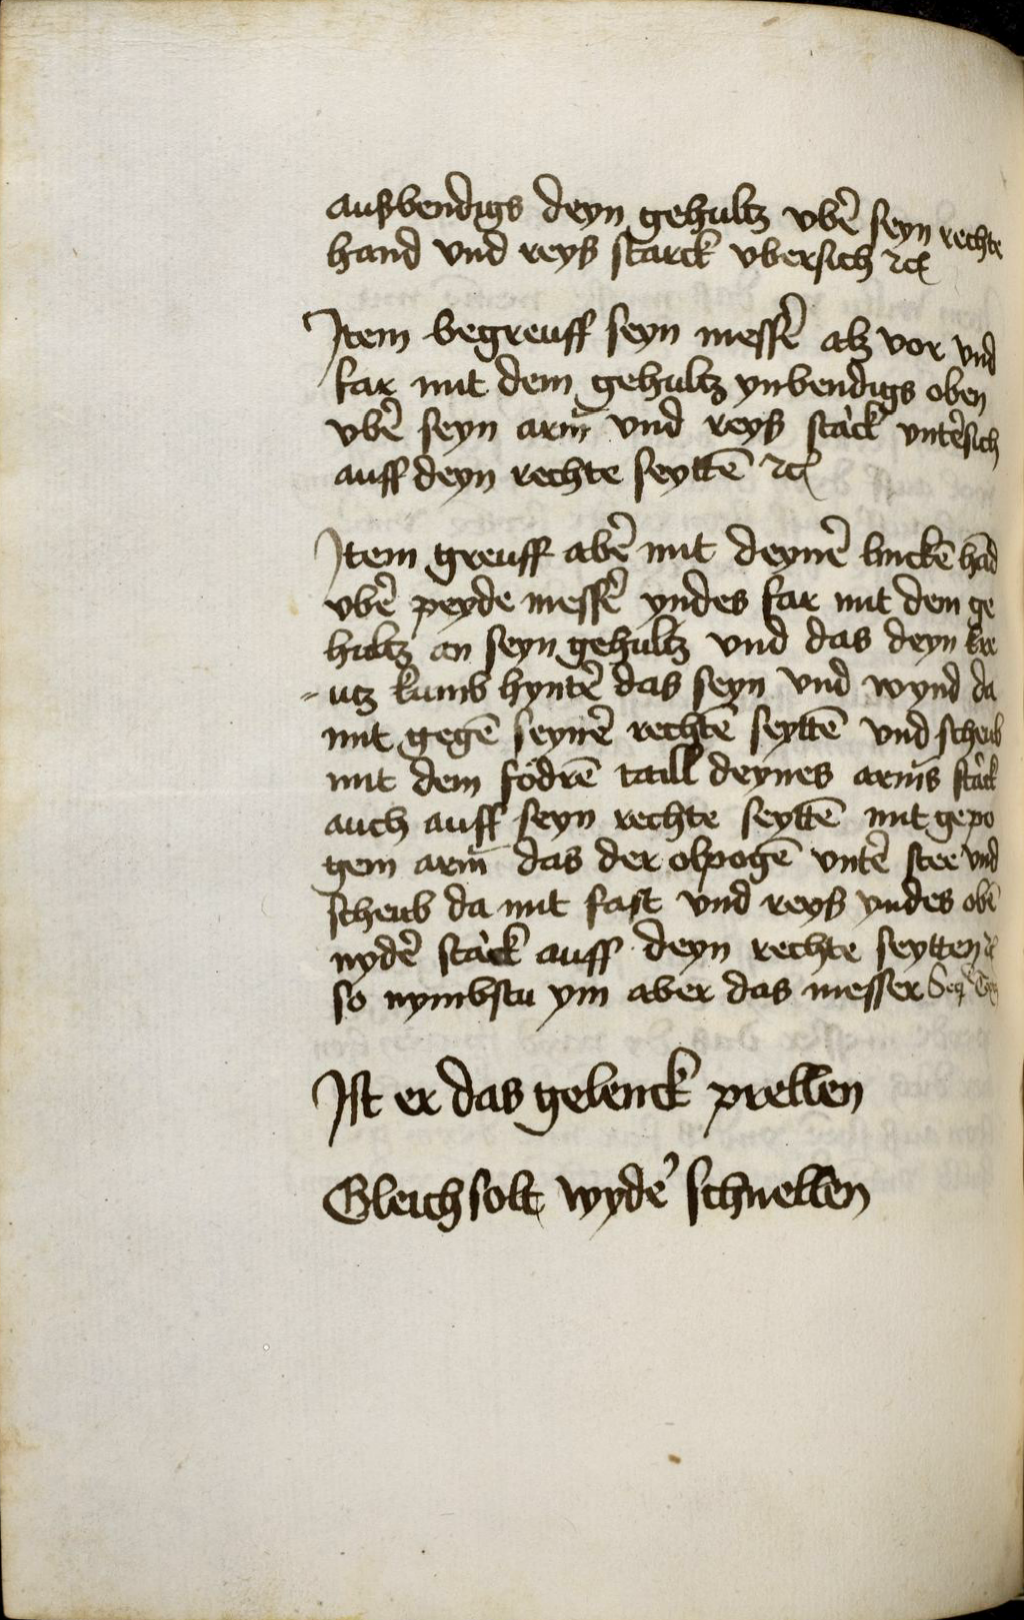 auswendigs deyn gehultz vbẽ seyn rechte
hand vnd reyß starck vbersich ⁊c̃
Item begreuff seyn messẽ alz vor vnd
far mit dem gehultz ynbendigs oben
vbẽ seyn arm̃ vnd reyß stàck vntẽsich
auff deyn rechte seyttẽ ⁊c̃
Item greuff abẽ mit deynẽ linckẽ hãd
vbẽ peyde messẽ yndes far mit dem ge
hultz an seyn gehultz vnd das deyn kre
-utz kumb hyntẽ das seyn vnd wynd da
mit gegẽ seynẽ rechtẽ seyttẽ vnd scheub
mit dem fodrẽ taill deynes arm̃s stàck
auch auff seyn rechte seyttẽ mit gepo
gem arm̃ das der olpogẽ vntẽ stee vnd
scheub da mit fast vnd reyß yndes obẽ
nydẽ stàck auff deyn rechte seytten ⁊c̃
so nymbstu ym aber das messer
Ist er das gelenck prellen
Gleich solt wydẽ schnellen